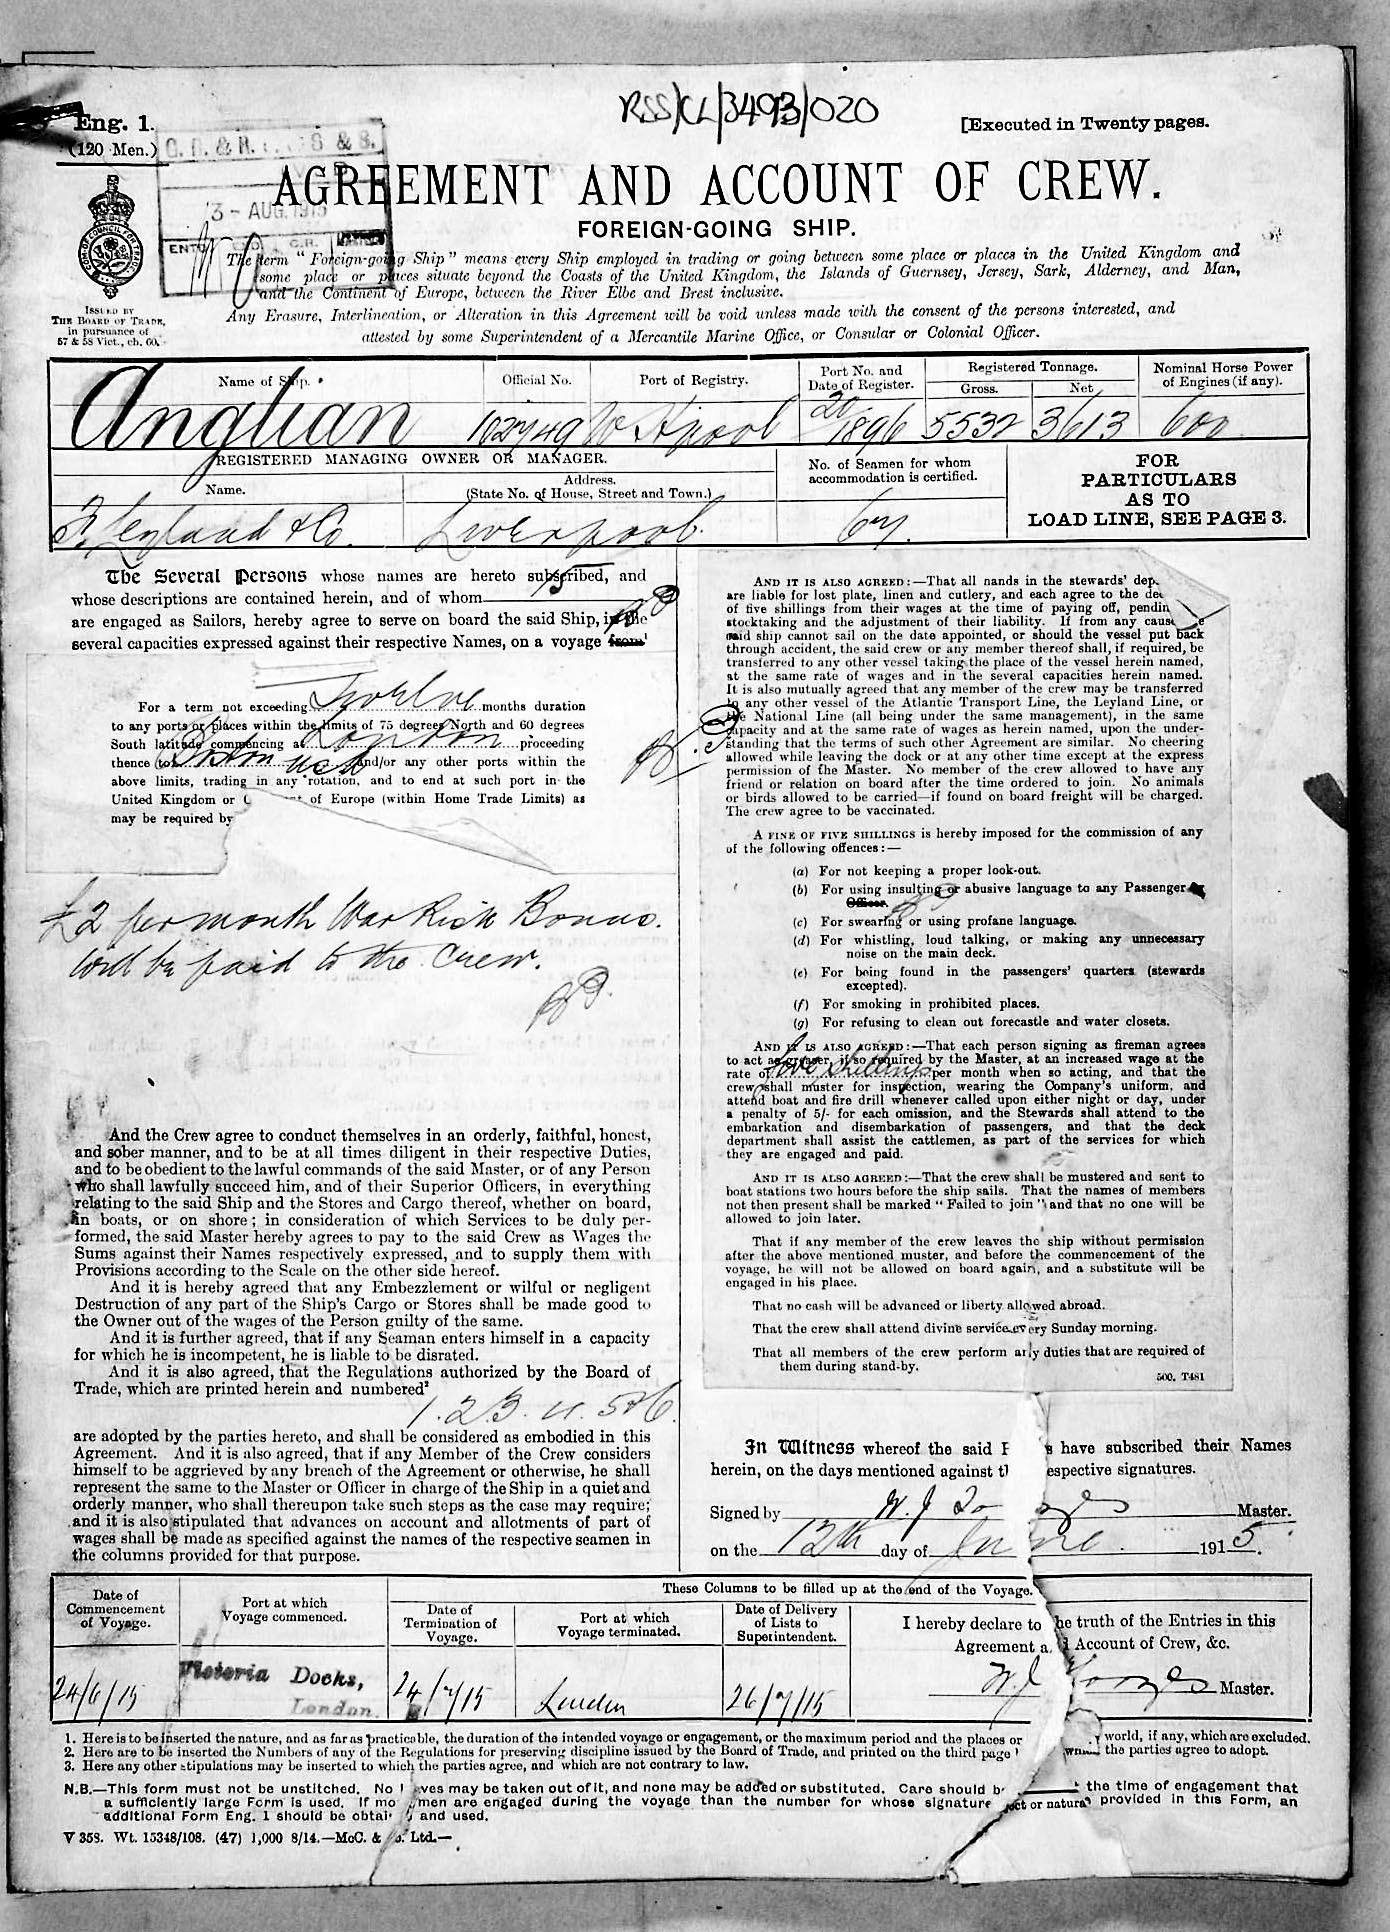 RSS/CL/3493/020
Eng. 1.
(120 Men.)
[Executed in Twenty pages.
3 - AUG. 1915
AGREEMENT AND ACCOUNT OF CREW.
FOREIGN-GOING SHIP.
ISSUED BY
THE BOARD OF TRADE,
in pursuance of
57 & 58 Vict., ch. 60.
The term "Foreign-going Ship" means every Ship employed in trading or going between some place or places in the United Kingdom and
some place or places situate beyond the Coasts of the United Kingdom, the Islands of Guernsey, Jersey, Sark, Alderney, and Man,
and the Continent of Europe, between the River Elbe and Brest inclusive.
Any Erasure, Interlineation, or Alteration in this Agreement will be void unless made with the consent of the persons interested, and
attested by some Superintendent of a Mercantile Marine Office, or Consular or Colonial Officer.
Name of Ship. Official No. Port of Registry. Port No. and Date of Register. Registered Tonnage. Gross. Net. Nominal Horse Power of Engines (if any).
Anglian 102749 20/1896 5532 3613 600
REGISTERED MANAGING OWNER OR MANAGER.
Name. Address. (State No. of House, Street and Town.)
No. of Seamen for whom accommodation is certified.
FOR PARTICULARS AS TO LOAD LINE, SEE PAGE 3.
F. Leyland & Co. Liverpool. 67.
The Several Persons whose names are hereto subscribed, and
whose descriptions are contained herein, and of whom 15
are engaged as Sailors, hereby agree to serve on board the said Ship, in the
several capacities expressed against their respective Names, on a voyage from
For a term not exceeding Twelve months duration
to any ports or places within the limits of 75 degrees North and 60 degrees
South latitude commencing at London proceeding
thence to Boston USA and/or any other ports within the
above limits, trading in any rotation, and to end at such port in the
United Kingdom or of Europe (within Home Trade Limits) as
may be required by
£2 per month War Risk Bonus.
Will be paid to the Crew.
And the Crew agree to conduct themselves in an orderly, faithful, honest,
and sober manner, and to be at all times diligent in their respective Duties,
and to be obedient to the lawful commands of the said Master, or of any Person
who shall lawfully succeed him, and of their Superior Officers, in everything
relating to the said Ship and the Stores and Cargo thereof, whether on board,
in boats, or on shore; in consideration of which Services to be duly per-
formed, the said Master hereby agrees to pay to the said Crew as Wages the
Sums against their Names respectively expressed, and to supply them with
Provisions according to the Scale on the other side hereof.
And it is hereby agreed that any Embezzlement or wilful or negligent
Destruction of any part of the Ship's Cargo or Stores shall be made good to
the Owner out of the wages of the Person guilty of the same.
And it is further agreed, that if any Seaman enters himself in a capacity
for which he is incompetent, he is liable to be disrated.
And it is also agreed, that the Regulations authorized by the Board of
Trade, which are printed herein and numbered²
1. 2. 3. 4. 5 & 6.
are adopted by the parties hereto, and shall be considered as embodied in this
Agreement. And it is also agreed, that if any Member of the Crew considers
himself to be aggrieved by any breach of the Agreement or otherwise, he shall
represent the same to the Master or Officer in charge of the Ship in a quiet and
orderly manner, who shall thereupon take such steps as the case may require;
and it is also stipulated that advances on account and allotments of part of
wages shall be made as specified against the names of the respective seamen in
the columns provided for that purpose.
AND IT IS ALSO AGREED:—That all hands in the stewards'
are liable for lost plate, linen and cutlery, and each agree to the
of five shillings from their wages at the time of paying off,
stocktaking and the adjustment of their liability. If from any cause
said ship cannot sail on the date appointed, or should the vessel put back
through accident, the said crew or any member thereof shall, if required, be
transferred to any other vessel taking the place of the vessel herein named,
at the same rate of wages and in the several capacities herein named.
It is also mutually agreed that any member of the crew may be transferred
to any other vessel of the Atlantic Transport Line, the Leyland Line, or
the National Line (all being under the same management), in the same
capacity and at the same rate of wages as herein named, upon the under-
standing that the terms of such other Agreement are similar. No cheering
allowed while leaving the dock or at any other time except at the express
permission of the Master. No member of the crew allowed to have any
friend or relation on board after the time ordered to join. No animals
or birds allowed to be carried—if found on board freight will be charged.
The crew agree to be vaccinated.
A FINE OF FIVE SHILLINGS is hereby imposed for the commission of any
of the following offences:—
(a) For not keeping a proper look-out.
(b) For using insulting or abusive language to any Passenger or
Officer.
(c) For swearing or using profane language.
(d) For whistling, loud talking, or making any unnecessary
noise on the main deck.
(e) For being found in the passengers' quarters (stewards
excepted).
(f) For smoking in prohibited places.
(g) For refusing to clean out forecastle and water closets.
AND IT IS ALSO AGREED:—That each person signing as fireman agrees
to act as greaser, if so required by the Master, at an increased wage at the
rate of five shillings per month when so acting, and that the
crew shall muster for inspection, wearing the Company's uniform, and
attend boat and fire drill whenever called upon either night or day, under
a penalty of 5/- for each omission, and the Stewards shall attend to the
embarkation and disembarkation of passengers, and that the deck
department shall assist the cattlemen, as part of the services for which
they are engaged and paid.
AND IT IS ALSO AGREED:—That the crew shall be mustered and sent to
boat stations two hours before the ship sails. That the names of members
not then present shall be marked "Failed to join" and that no one will be
allowed to join later.
That if any member of the crew leaves the ship without permission
after the above mentioned muster, and before the commencement of the
voyage, he will not be allowed on board again, and a substitute will be
engaged in his place.
That no cash will be advanced or liberty allowed abroad.
That the crew shall attend divine service every Sunday morning.
That all members of the crew perform any duties that are required of
them during stand-by.
500. T481
In Witness whereof the said have subscribed their Names
herein, on the days mentioned against respective signatures.
Signed by W. J. Master.
on the 12th day of June 1915.
Date of Commencement of Voyage. Port at which Voyage commenced.
These Columns to be filled up at the end of the Voyage.
Date of Termination of Voyage. Port at which Voyage terminated. Date of Delivery of Lists to Superintendent.
I hereby declare to the truth of the Entries in this
Agreement and Account of Crew, &c.
24/6/15 Victoria Docks, London. 24/7/15 London 26/7/15 W. J. Master.
1. Here is to be inserted the nature, and as far as practicable, the duration of the intended voyage or engagement, or the maximum period and the places or world, if any, which are excluded.
2. Here are to be inserted the Numbers of any of the Regulations for preserving discipline issued by the Board of Trade, and printed on the third page the parties agree to adopt.
3. Here any other stipulations may be inserted to which the parties agree, and which are not contrary to law.
N.B.—This form must not be unstitched. No leaves may be taken out of it, and none may be added or substituted. Care should be the time of engagement that
a sufficiently large Form is used. If more men are engaged during the voyage than the number for whose signature provided in this Form, an
additional Form Eng. 1 should be obtained and used.
V 358. Wt. 15348/108. (47) 1,000 8/14.—McC. & Co. Ltd.—